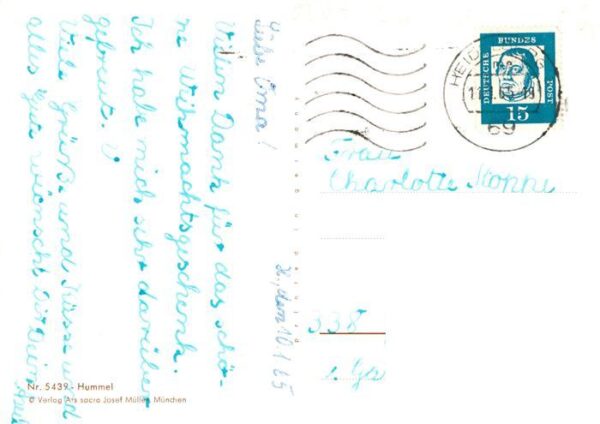 Liebe Oma!
Vielen Dank für das schö-
ne Weihnachtsgeschenk.
Ich habe mich sehr darüber
gefreut.
Viele Grüße und Küsse und
alles Gute wünscht Dir Dein
den 10.1.65
Frau
Charlotte Hoppe
338
Nr. 5439 - Hummel
© Verlag Ars sacra Josef Müller, München
Printed in Germany
DEUTSCHE
BUNDES
POST
15
69